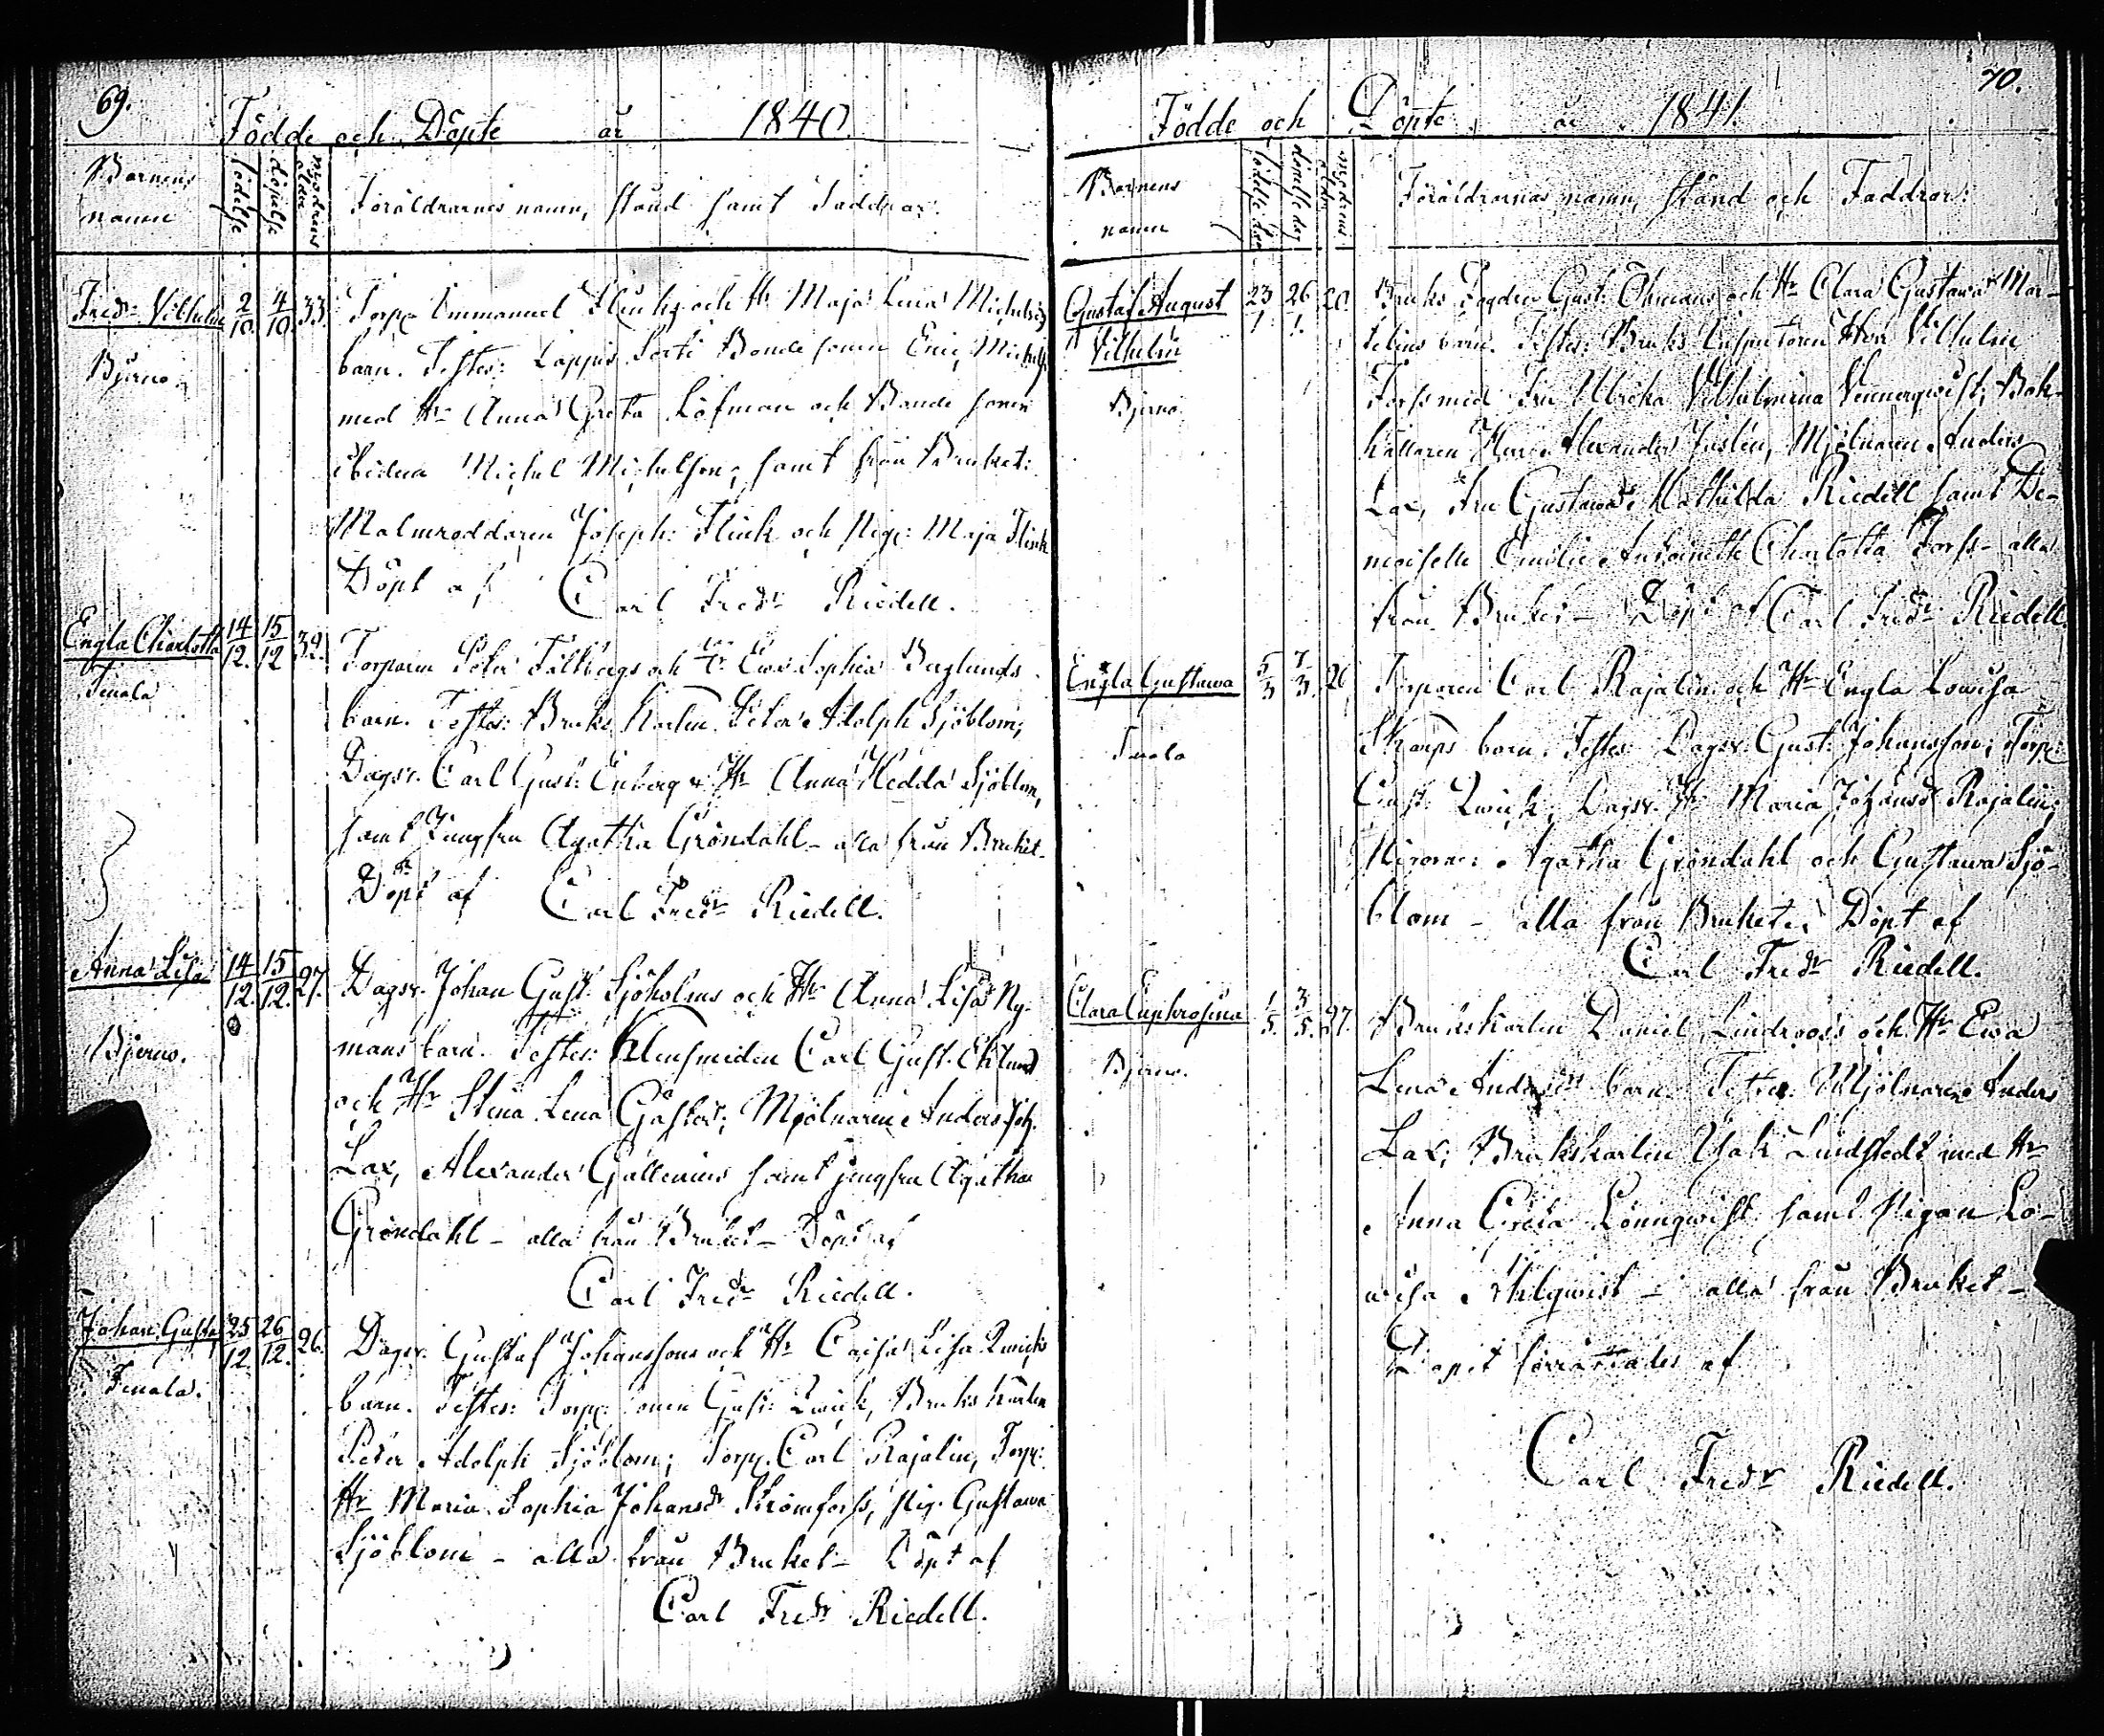 69.
Födde och Döpte år 1840.
Barnens namn
födelse
döpelse
modrens ålder
Föräldrarnes namn, stånd samt Faddrar.
Fredr. Vilhelm 2/10. 4/10 33.
Bjerno.
Torp. Emmanuel Flinks och Hr Maja Lena Michelsdr
barn. Testes: Lappis Bonde sonen Eric Michels.
med Hr Anna Greta Löfman och Bonde sonen
ibidem Michel Michelson, samt från Bruket:
Malmroddaren Joseph: Flink och Pig: Maja Flink
Döpt af Carl Fredr Riedell.
Engla Charlotta 14/12. 15/12 39.
Finala
Torparen Peter Fälthags och Hr Ewa Sophia Berglunds
barn. Testes: Bruks Karlen Peter Adolph Sjöblom,
Dagsv. Carl Gust: Enberg Hr Anna Hedda Sjöblom,
samt Jungfru Agatha Gröndahl – alla från Bruket.
Döpt af Carl Fredr Riedell.
Anna Lisa 14/12. 15/12. 27.
Bjerno.
Dagsv. Johan Gust. Sjöholms och Hr Anna Lisa Ny-
mans barn. Testes: Klensmeden Carl Gust. Eklund
och Hr Stina Lena Gästers; Mjölnaren Anders Joh.
Lax, Alexander Gallenius samt jungfru Agatha
Gröndahl – alla från Bruket – Döpt af
Carl Fredr Riedell.
Johan Gustaf 25/12. 26/12. 26.
Finala.
Dagsv. Gustaf Johanssons och Hr Caisa Lisa Qwicks
barn. Testes: Torp: sonen Gust: Qwick, Bruks karlen
Peter Adolph Sjöblom; Torp. Carl Rajalin, Torp:
Hr Maria Sophia Johansdr Strömforss, Pig. Gustawa
Sjöblom – alla från Bruket – Döpt af
Carl Fredr Riedell.
70.
Födde och Döpte år 1841.
Barnens namn
födelse dag
döpelse dag
modrens ålder
Föräldrarnas namn, stånd och Faddrar:
Gustaf August 23/1 26/1. 20.
Vilhelm
Bjerno
Bruks Gust. Öhmans och Hr Clara Gustawa Mar-
telins barn. Testes: Bruks Inspectoren Herr Vilhelm
Forss med Fru Ulrika Vilhelmina Wennerqwist, Bok-
hållaren Herr Alexander Juslén, Mjölnaren Anders
Lax, Fru Gustawa Mathilda Riedell samt De-
moiselle Emilie Antoinette Charlotta Forss – alla
från Bruket – Döpt af Carl Fredr Riedell.
Engla Gustawa 5/3 7/3. 26
Finala
Torparen Carl Rajalin och Hr Engla Lowisa
Skarps barn. Testes Dagsv. Gust: Johansson; Torp:
Gust. Qwick, Dagsv. Hr Maria Johansdr Rajalin;
Pigorne: Agatha Gröndahl och Gustawa Sjö-
blom – alla från Bruket. Döpt af
Carl Fredr Riedell.
Clara Euphrosina 1/5. 3/5. 27.
Bjerno.
Brukskarlen Daniel Lindroos's och Hr Ewa
Lena Andersdr barn. Testes Mjölnaren Anders
Lax; Brukskarlen Isak Lindstedt med Hr
Anna Greta Lönnqwist samt Pigan Lo-
wisa Ahlqwist – alla från Bruket –
Dopet förrättades af
Carl Fredr Riedell.